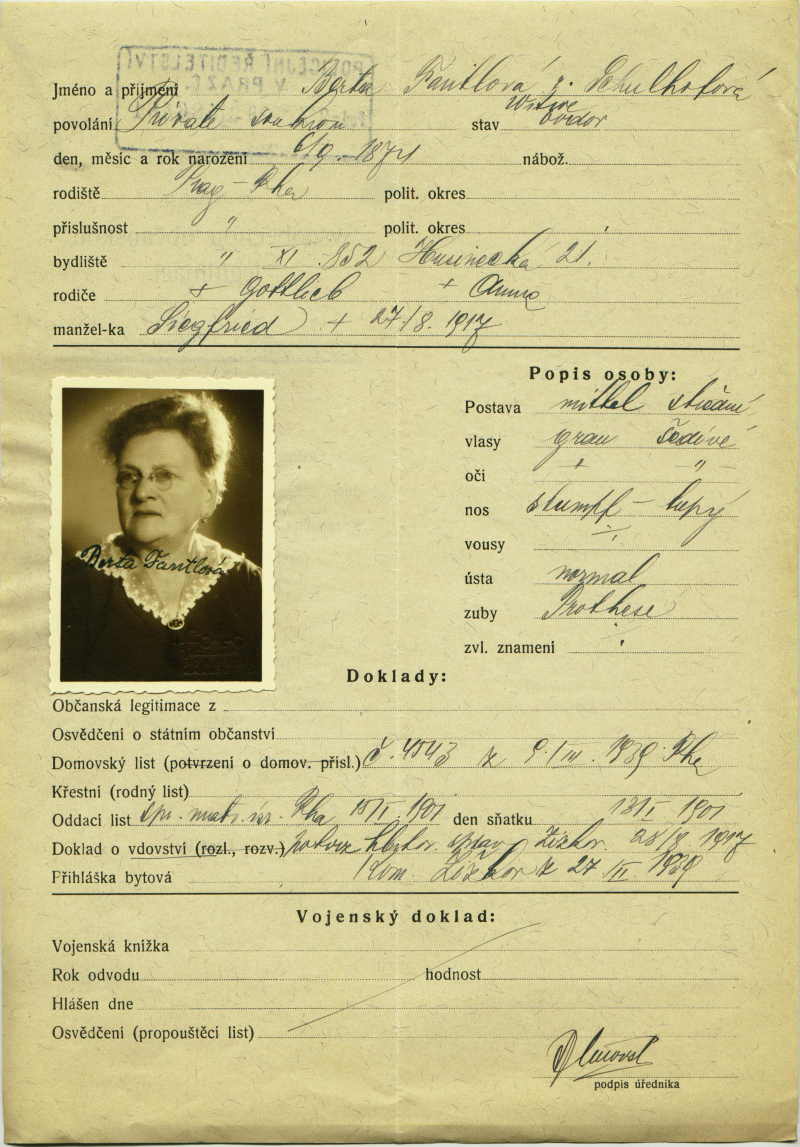 POLICEJNÍ ŘEDITELSTVÍ
V PRAZE
Jméno a příjmení Berta Fantlová r. Schulhofová
povolání Private soukrom stav Witwe vdov
den, měsíc a rok narození 6/9. 1874 nábož.
rodiště Prag - Pha polit. okres
příslušnost " polit. okres
bydliště " XI. 852 Husinecká 21.
rodiče + Gottlieb + Anna
manžel-ka Siegfried + 27/8. 1917
Popis osoby:
Postava mittel střední
vlasy grau šedivé
oči " "
nos stumpf - tupý
vousy
ústa normal
zuby Prothese
zvl. znamení
Berta Fantlová
Doklady:
Občanská legitimace z
Osvědčení o státním občanství
Domovský list (potvrzení o domov. přísl.) č. 4543 z 9./III. 1939. Pha
Křestní (rodný list)
Oddací list Pha 15/I 1901 den sňatku 13/I 1901
Doklad o vdovství (rozl., rozv.) potvrz hřbitov. Žižkov. 28/8 1917
Přihláška bytová Kom. Žižkov z 27 1939
Vojenský doklad:
Vojenská knížka
Rok odvodu hodnost
Hlášen dne
Osvědčení (propouštěcí list)
podpis úředníka